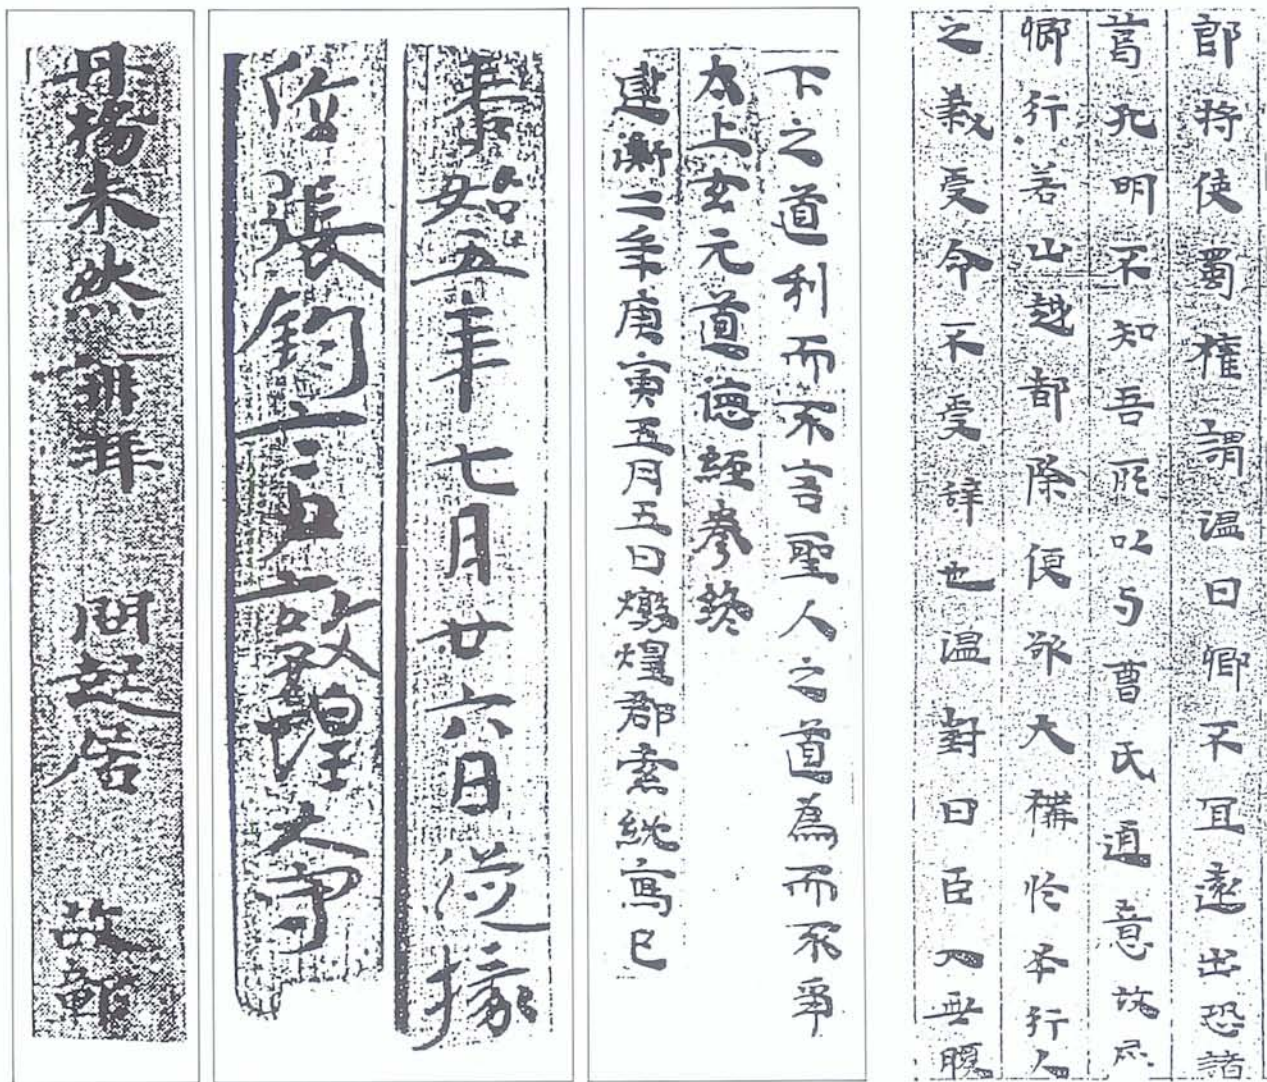 郎將使蜀權謂温曰卿不宜遠出恐諸
葛孔明不知吾所以与曹氏通意故屈
卿行若山越都除便欲大構於丕行人
之義受命不受辞也温對曰臣入無腹
下之道利而不害聖人之道為而不爭
太上玄元道德經卷終
建衡二年庚寅五月五日燉煌郡索紞寫已
泰始五年七月廿六日從掾
位張鈞言敦煌太守
丹楊朱然再拜 問起居 故鄣